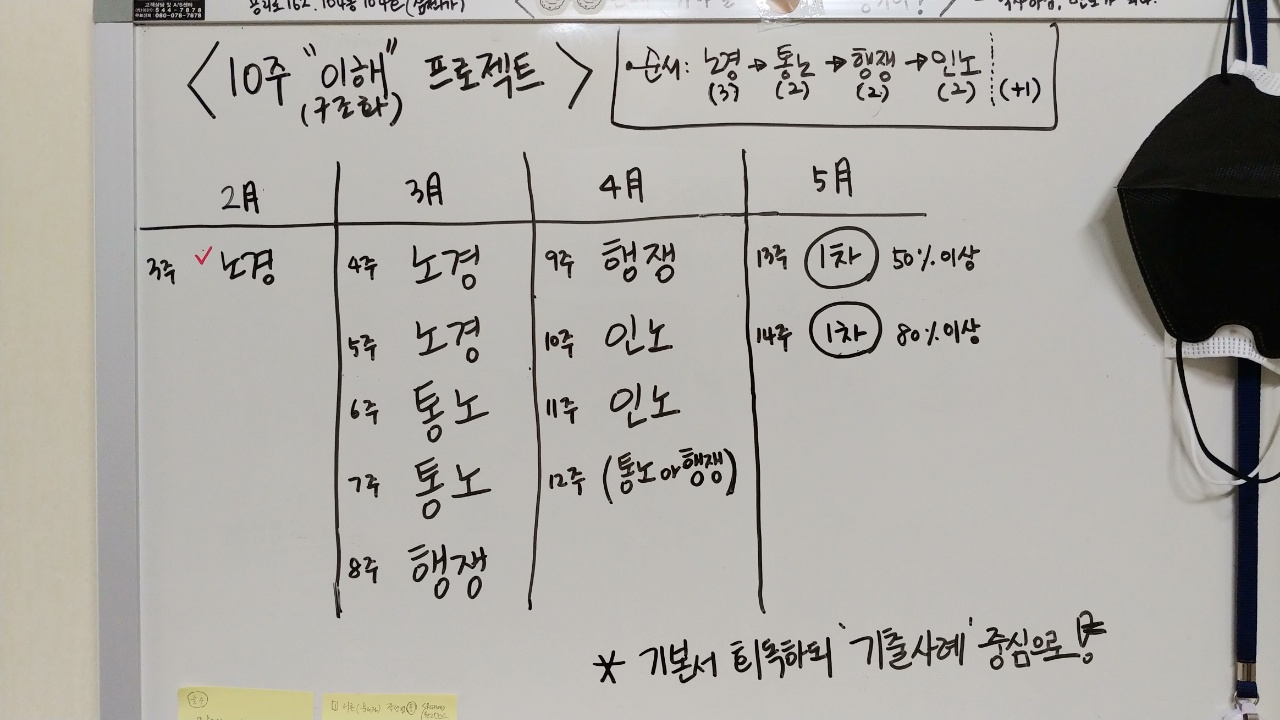 고객상담 및 A/S센터
544-7878
080-078-7878
<10주 "이해" 프로젝트>
(구조화)
• 순서: 노경 → 통노 → 행쟁 → 인노
(3) (2) (2) (2) (+1)
2月 3月 4月 5月
3주 ✓ 노경 4주 노경 9주 행쟁 13주 1차 50% 이상
5주 노경 10주 인노 14주 1차 80% 이상
6주 통노 11주 인노
7주 통노 12주 (통노 or 행쟁)
8주 행쟁
* 기본서 회독하되 '기출사례' 중심으로!